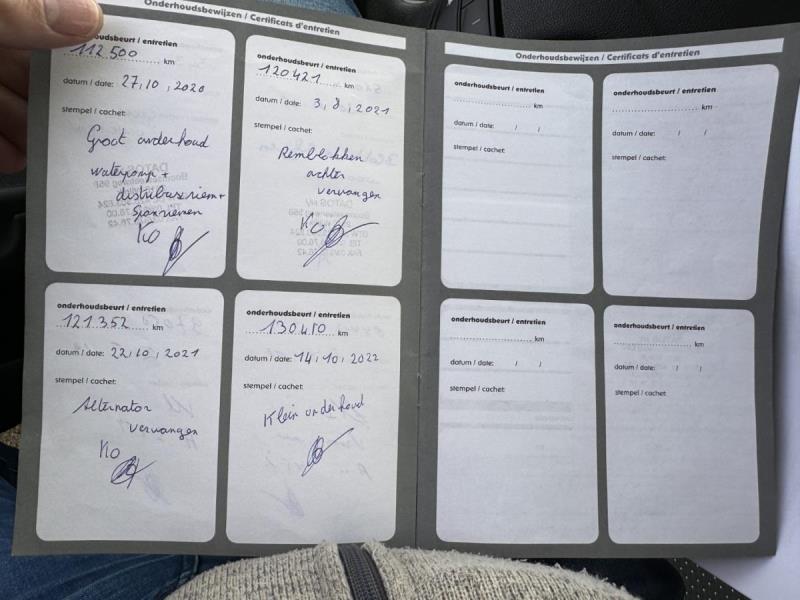 Onderhoudsbewijzen / Certificats d'entretien
onderhoudsbeurt / entretien
112 500 km
datum / date: 27, 10, 2020
stempel / cachet:
Groot onderhoud
waterpomp +
distributieriem +
Spanriemen
KO
onderhoudsbeurt / entretien
120421 km
datum / date: 3, 8, 2021
stempel / cachet:
Remblokken
achter
vervangen
KO
onderhoudsbeurt / entretien
121.352 km
datum / date: 22, 10, 2021
stempel / cachet:
Alternator
vervangen
KO
onderhoudsbeurt / entretien
130410 km
datum / date: 14, 10, 2022
stempel / cachet:
Klein onderhoud
Onderhoudsbewijzen / Certificats d'entretien
onderhoudsbeurt / entretien
km
datum / date: / /
stempel / cachet:
onderhoudsbeurt / entretien
km
datum / date: / /
stempel / cachet:
onderhoudsbeurt / entretien
km
datum / date: / /
stempel / cachet:
onderhoudsbeurt / entretien
km
datum / date: / /
stempel / cachet: